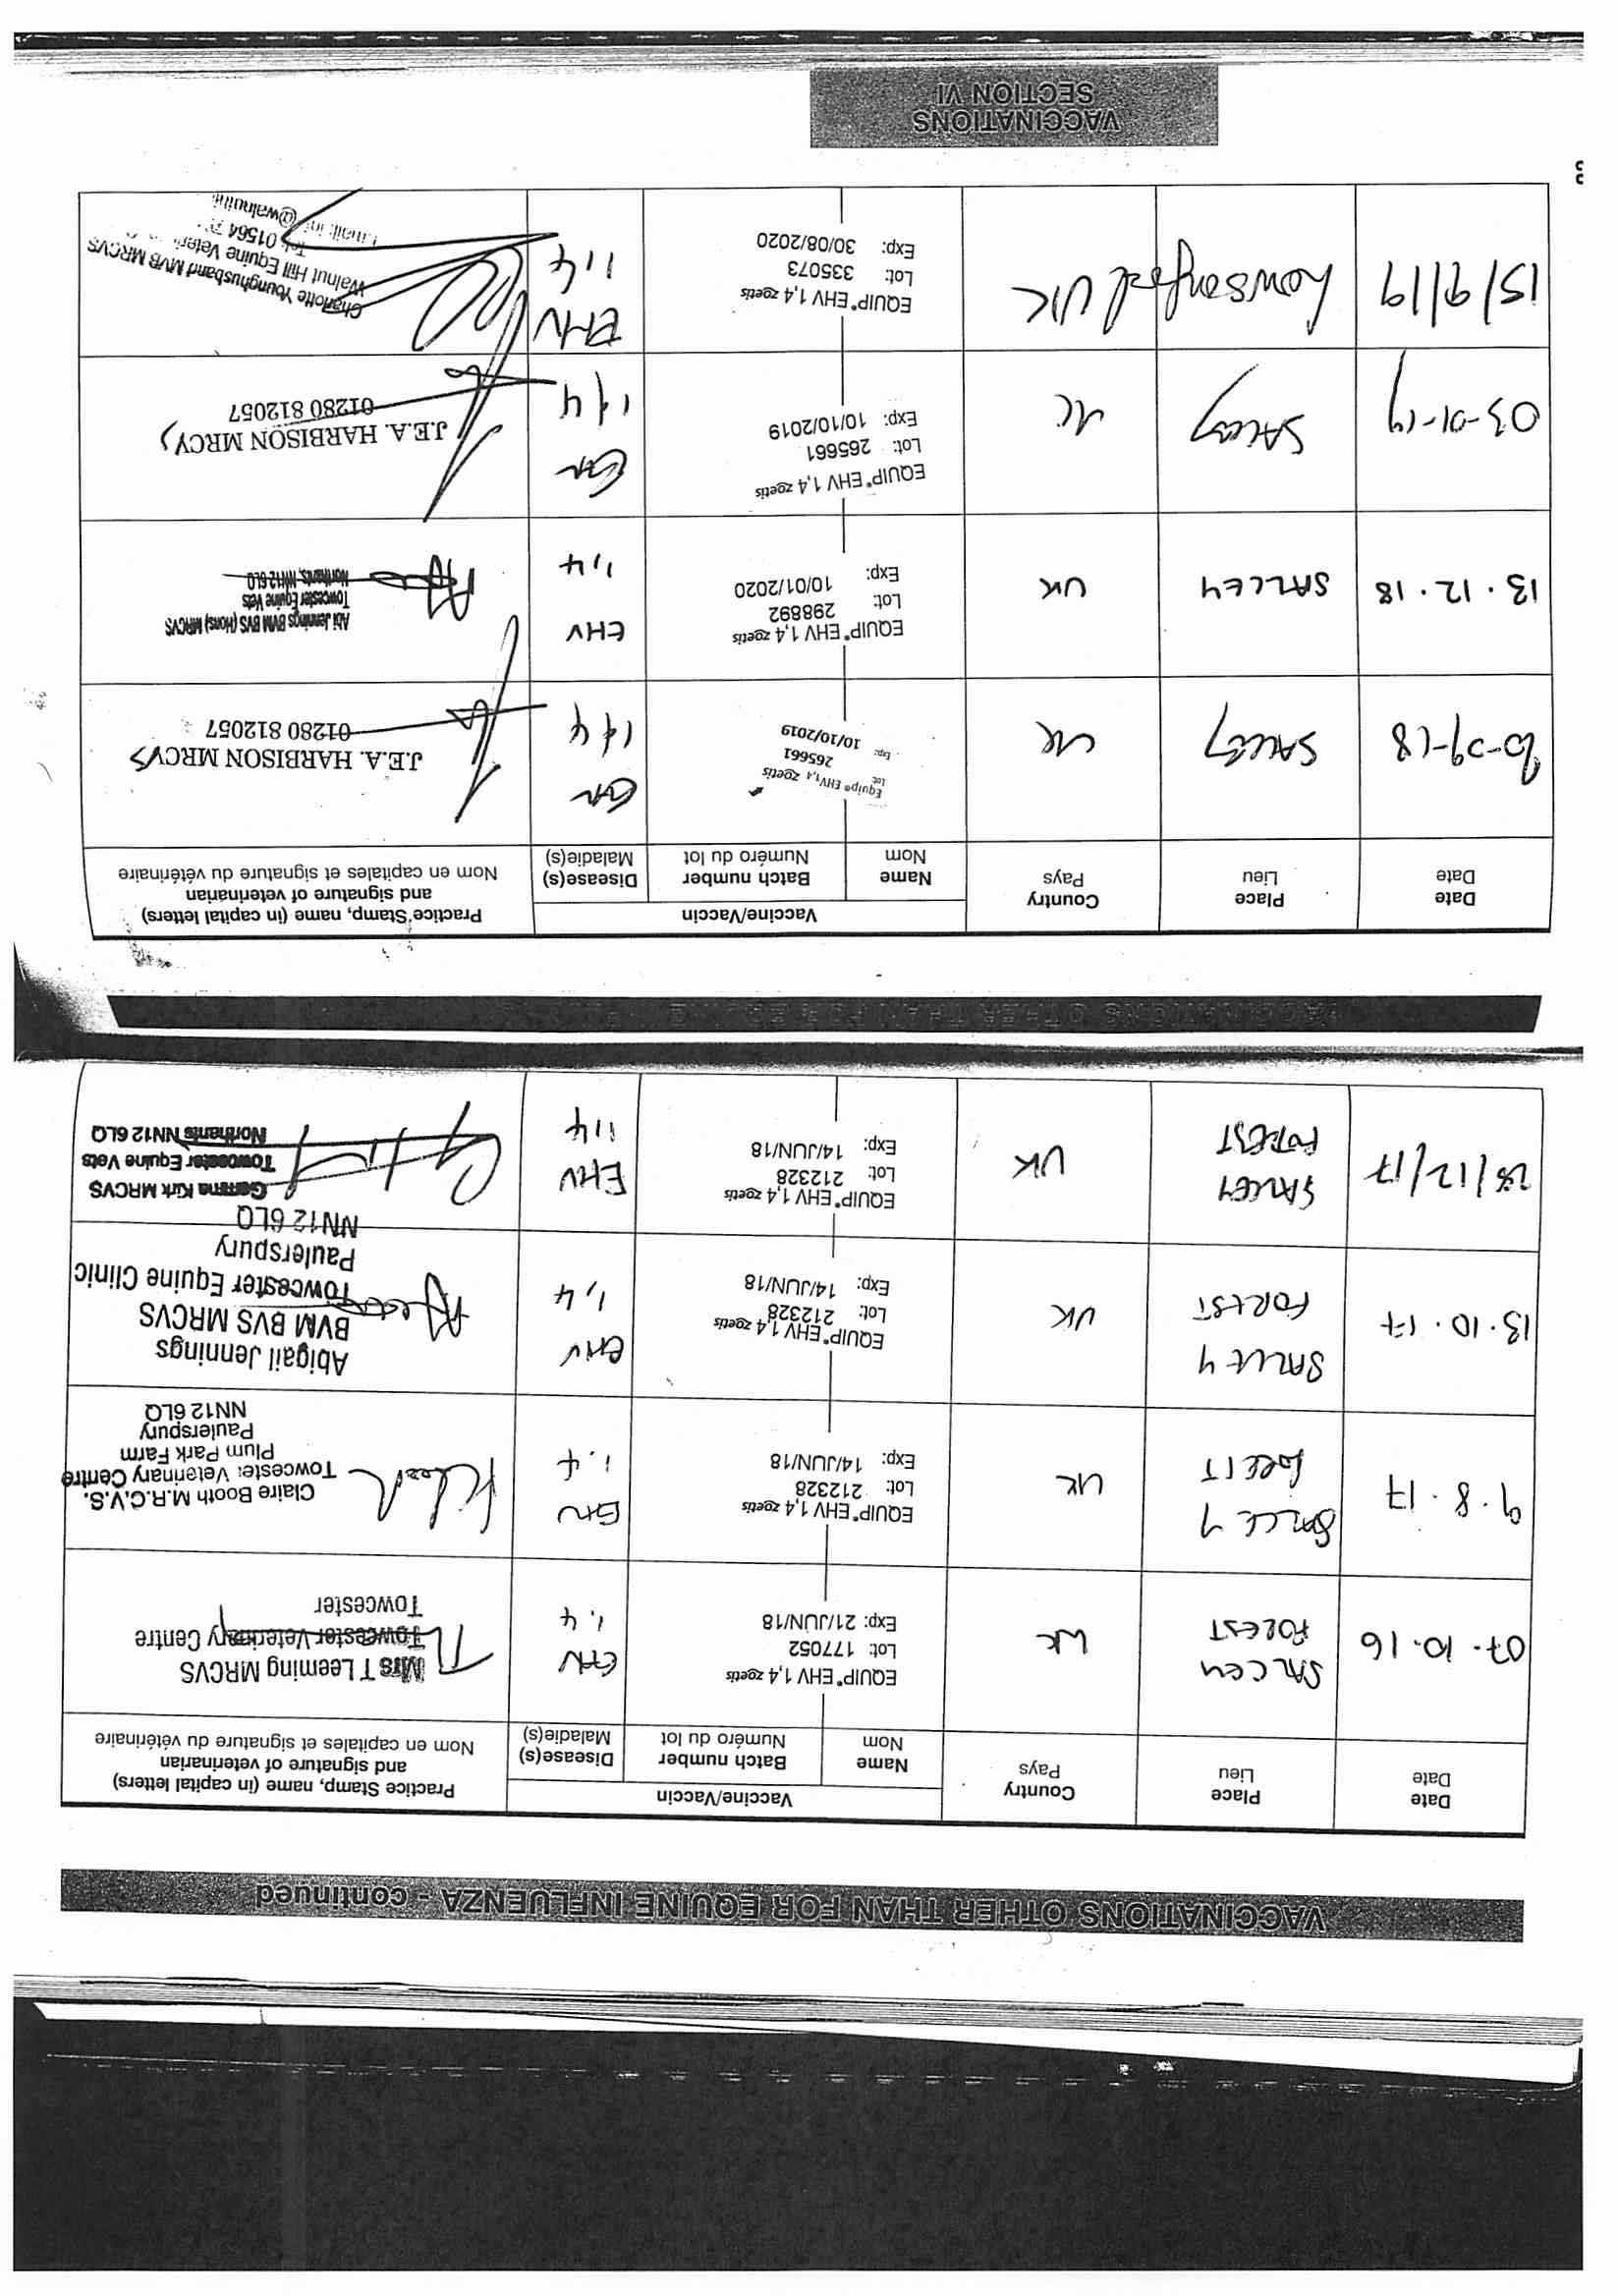 VACCINATIONS OTHER THAN FOR EQUINE INFLUENZA - continued
Date
Date
Place
Lieu
Country
Pays
Vaccine/Vaccin
Name
Nom
Batch number
Numéro du lot
Disease(s)
Maladie(s)
Practice Stamp, name (in capital letters)
and signature of veterinarian
Nom en capitales et signature du vétérinaire
07.10.16
SALCEY
FOREST
UK
EQUIP® EHV 1,4 zoetis
Lot: 177052
Exp: 21/JUN/18
EHV
1.4
Mrs T Leeming MRCVS
Towcester Veterinary Centre
Towcester
9.8.17
SALCEY
FOREST
UK
EQUIP® EHV 1,4 zoetis
Lot: 212328
Exp: 14/JUN/18
EHV
1.4
Claire Booth M.R.C.V.S.
Towcester Veterinary Centre
Plum Park Farm
Paulerspury
NN12 6LQ
13.10.17
SALCEY
FOREST
UK
EQUIP® EHV 1,4 zoetis
Lot: 212328
Exp: 14/JUN/18
EHV
1,4
Abigail Jennings
BVM BVS MRCVS
Towcester Equine Clinic
Paulerspury
NN12 6LQ
/12/17
SALCEY
FOREST
UK
EQUIP® EHV 1,4 zoetis
Lot: 212328
Exp: 14/JUN/18
EHV
1,4
Gemma Kirk MRCVS
Towcester Equine Vets
Northants NN12 6LQ
VACCINATIONS OTHER THAN FOR
Date
Date
Place
Lieu
Country
Pays
Vaccine/Vaccin
Name
Nom
Batch number
Numéro du lot
Disease(s)
Maladie(s)
Practice Stamp, name (in capital letters)
and signature of veterinarian
Nom en capitales et signature du vétérinaire
-09-18
SALCEY
UK
Equip® EHV1,4 zoetis
Lot: 265661
Exp: 10/10/2019
EHV
1,4
J.E.A. HARBISON MRCVS
01280 812057
13.12.18
SALCEY
UK
EQUIP® EHV 1,4 zoetis
Lot: 298892
Exp: 10/01/2020
EHV
1,4
Abi Jennings BVM BVS (Hons) MRCVS
Towcester Equine Vets
Northants, NN12 6LQ
03-01-19
SALCEY
UK
EQUIP® EHV 1,4 zoetis
Lot: 265661
Exp: 10/10/2019
EHV
1,4
J.E.A. HARBISON MRCVS
01280 812057
15/9/19
Lowsonford
UK
EQUIP® EHV 1,4 zoetis
Lot: 335073
Exp: 30/08/2020
EHV
1,4
Charlotte Younghusband MVB MRCVS
Walnut Hill Equine
Tel: 01564
VACCINATIONS
SECTION VI